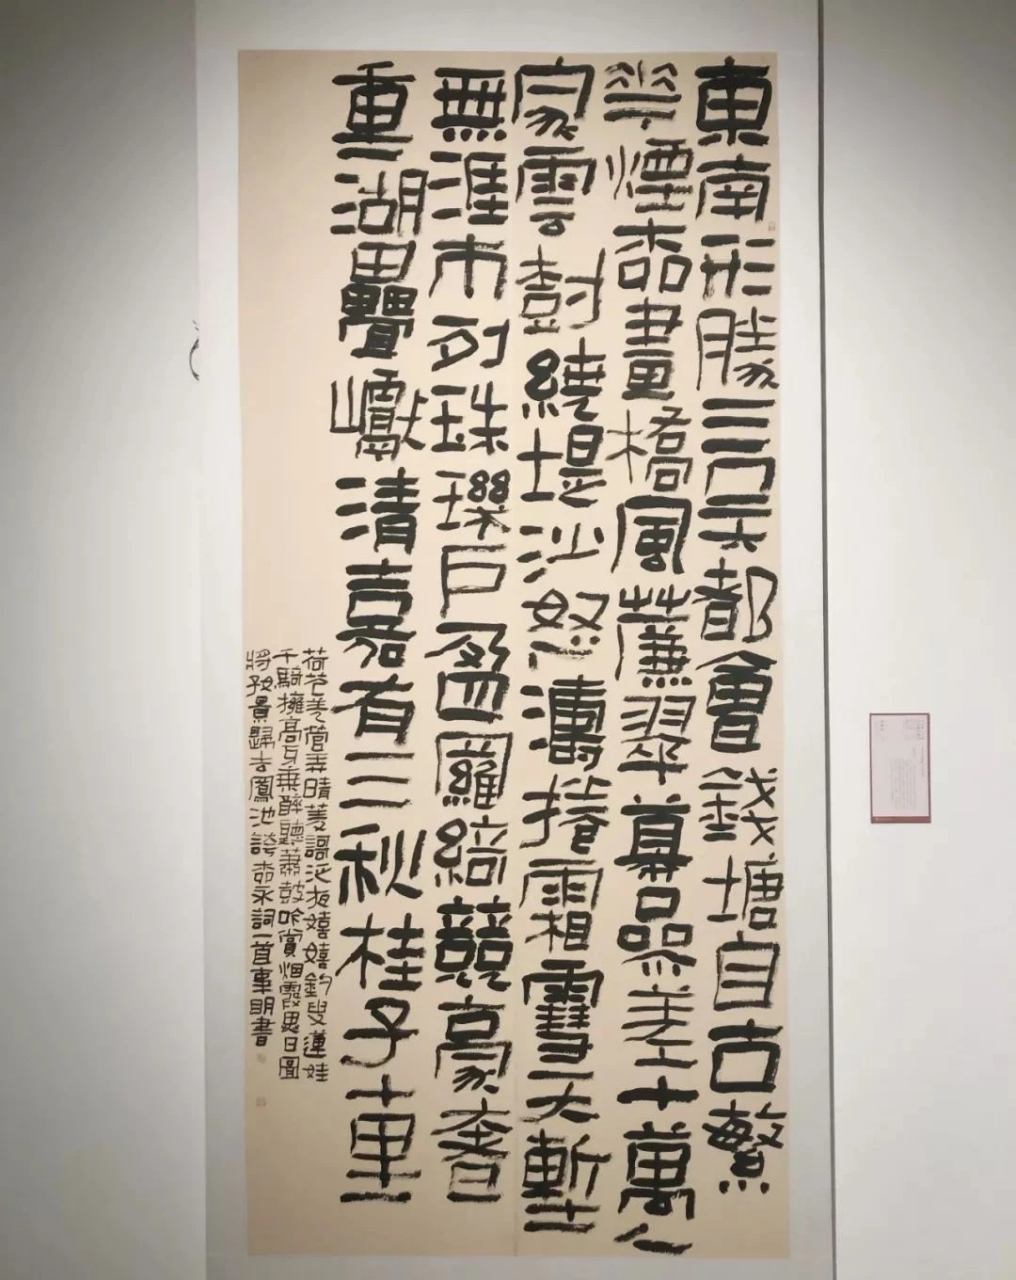 東南形勝三吳都會錢塘自古繁
華煙柳畫橋風簾翠幕參差十萬人
家雲樹繞堤沙怒濤捲霜雪天塹
無涯市列珠璣户盈羅綺競豪奢
重湖疊巘清嘉有三秋桂子十里
荷花羌管弄晴菱謌泛夜嬉嬉釣叟蓮娃
千騎擁高牙乘醉聽蕭鼓吟賞烟霞異日圖
將好景歸去鳳池誇柳永詞一首明書